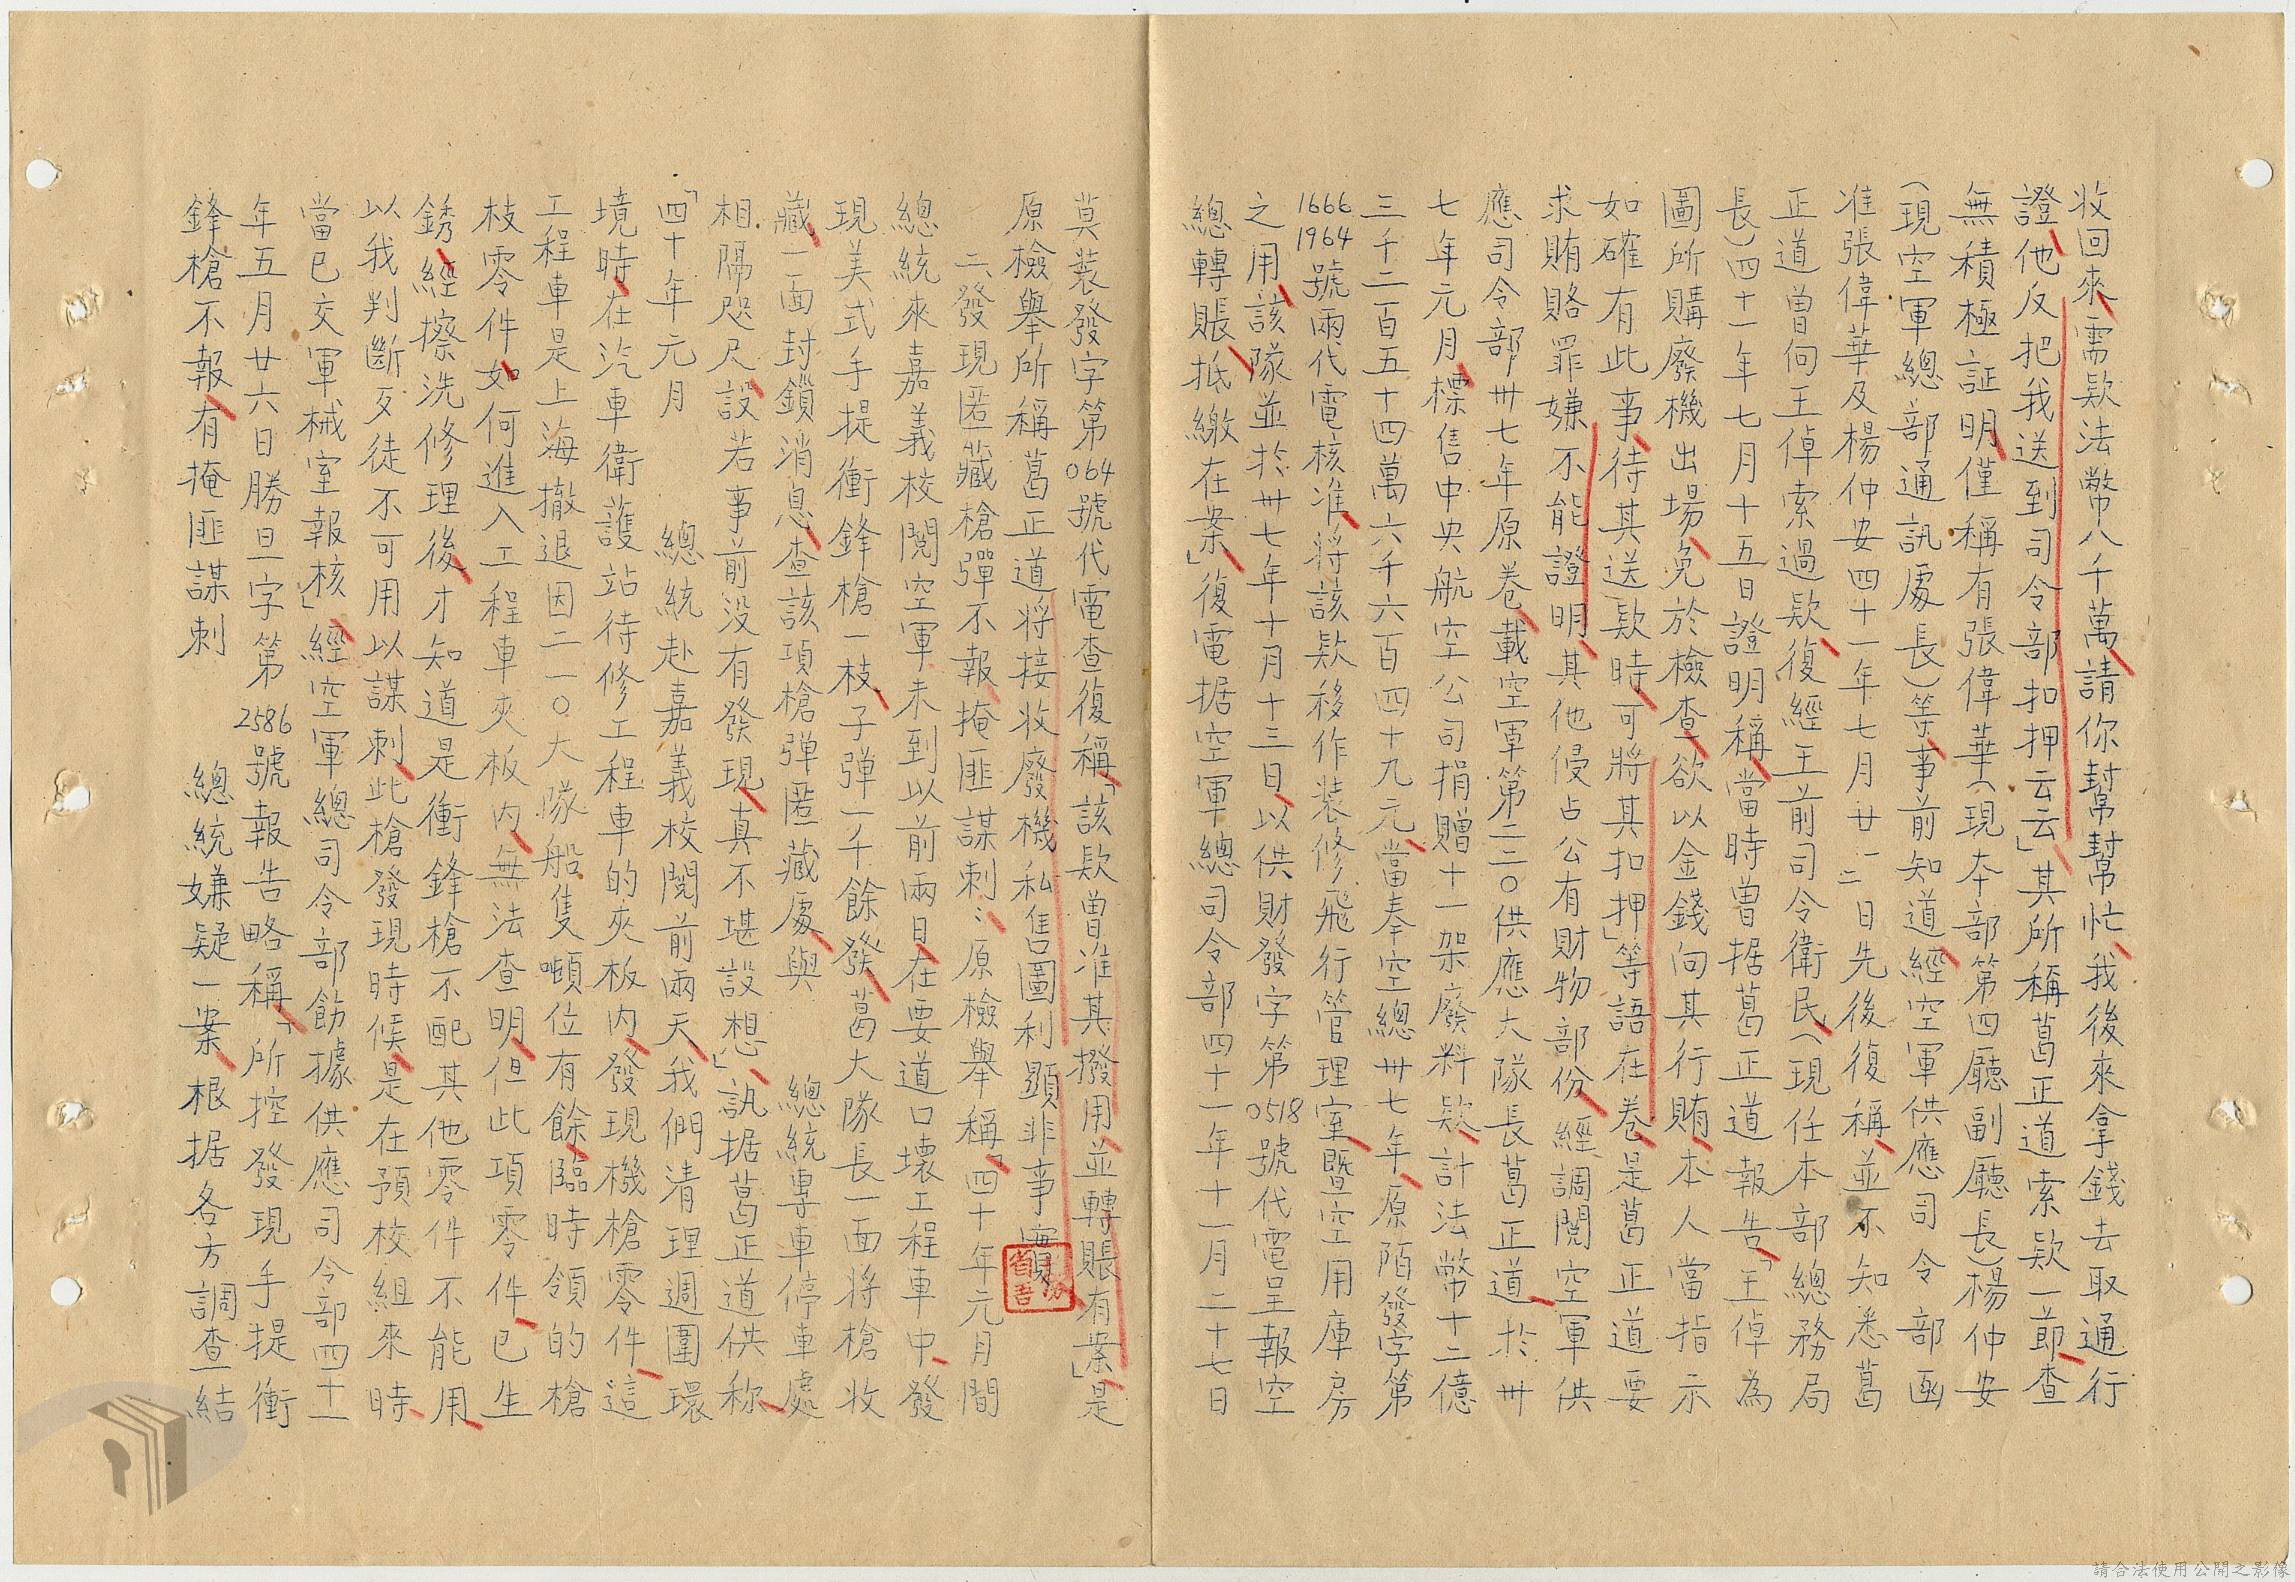 收回來需欵法幣八千萬請你幫幫忙我後來拿錢去取通行
證他反把我送到司令部扣押云云」其所稱葛正道索欵一節查
無積極証明僅稱有張偉華(現本部第四廳副廳長)楊仲安
(現空軍總部通訊處長)等事前知道經空軍供應司令部函
准張偉華及楊仲安四十一年七月廿一二日先後復稱並不知悉葛
正道曾向王倬索過欵復經王前司令衛民(現任本部總務局
長)四十一年七月十五日證明稱當時曾据葛正道報告「王倬為
圖所購廢機出場免於檢查欲以金錢向其行賄本人當指示
如確有此事待其送欵時可將其扣押」等語在卷是葛正道要
求賄賂罪嫌不能證明其他侵占公有財物部份經調閱空軍供
應司令部卅七年原卷載空軍第二二〇供應大隊長葛正道於卅
七年元月標售中央航空公司捐贈十一架廢料欵計法幣十二億
三千二百五十四萬六千六百四十九元當奉空總卅七年原陌發字第
1666
1964號兩代電核准將該欵移作裝修飛行管理室暨空用庫房
之用該隊並於卅七年十月十三日以供財發字第0518號代電呈報空
總轉賬抵繳在案」復電据空軍總司令部四十一年十一月二十七日
莫裝發字第064號代電查復稱「該欵曾准其撥用並轉賬有案」是
原檢舉所稱葛正道將接收廢機私售圖利顯非事實
二、發現匿藏槍彈不報掩匪謀刺:原檢舉稱「四十年元月間
總統來嘉義校閱空軍未到以前兩日在要道口壞工程車中發
現美式手提衝鋒槍一枝子彈一千餘發葛大隊長一面將槍收
藏一面封鎖消息查該項槍彈匿藏處與 總統專車停車處
相隔咫尺設若事前没有發現真不堪設想」訊据葛正道供称
「四十年元月 總統赴嘉義校閱前兩天我們清理週圍環
境時在汽車衛護站待修工程車的夾板内發現機槍零件這
工程車是上海撤退因二一〇大隊船隻噸位有餘臨時領的槍
枝零件如何進入工程車夾板内無法查明但此項零件已生
銹經擦洗修理後才知道是衝鋒槍不配其他零件不能用
以我判斷歹徒不可用以謀刺此槍發現時候是在預校組來時
當已交軍械室報核」經空軍總司令部飭據供應司令部四十一
年五月廿六日勝旦字第2586號報告略稱「所控發現手提衝
鋒槍不報有掩匪謀刺 總統嫌疑一案根据各方調查結
請合法使用公開之影像